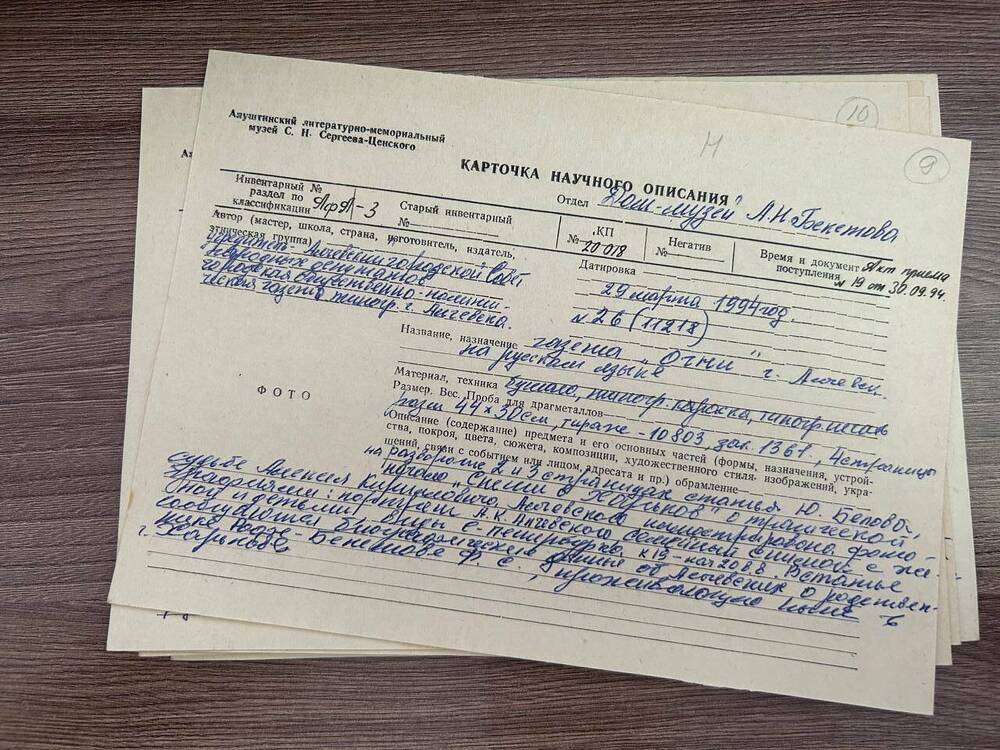 10
Ал
Алуштинский литературно-мемориальный
музей С. Н. Сергеева-Ценского
Н
9
КАРТОЧКА НАУЧНОГО ОПИСАНИЯ
Отдел Дом-музей А.Н. Бекетова
Инвентарный №
раздел по
классификации АфЛ-3
Старый инвентарный
№
КП
№ 20078
Негатив
№
Время и документ Акт приема
поступления № 19 от 30.09.94.
Автор (мастер, школа, страна, изготовитель, издатель,
этническая группа)
Учредитель - Алчевский городской Совет
народных депутатов
городская общественно-полити-
ческая газета типогр. г. Алчевска.
Датировка
29 марта 1994 год.
№ 26 (11218)
Название, назначение газета "Огни" г. Алчевск.
на русском языке
ФОТО
Материал, техника бумага, типогр. краска, типогр. печать
Размер. Вес. Проба для драгметаллов
разм 44 х 30 см, тираж - 10803 зак. 1361, 4 страницы
Описание (содержание) предмета и его основных частей (формы, назначения, устрой-
ства, покроя, цвета, сюжета, композиции, художественного стиля, изображений, укра-
шений, связи с событием или лицом, адресата и пр.) обрамление
на развороте 2 и 3 страницах статья Ю. Белова,
"Снегин в Харьков" о трагической
судьбе Алексея Кирилловича Алчевского иллюстрирована фото-
графиями: портрет А.К. Алчевского семейный снимок с же-
ной и детьми,
сообщаются биографические данные об Алчевских о родствен-
Ф. С., проживающую ныне в
г. Харькове